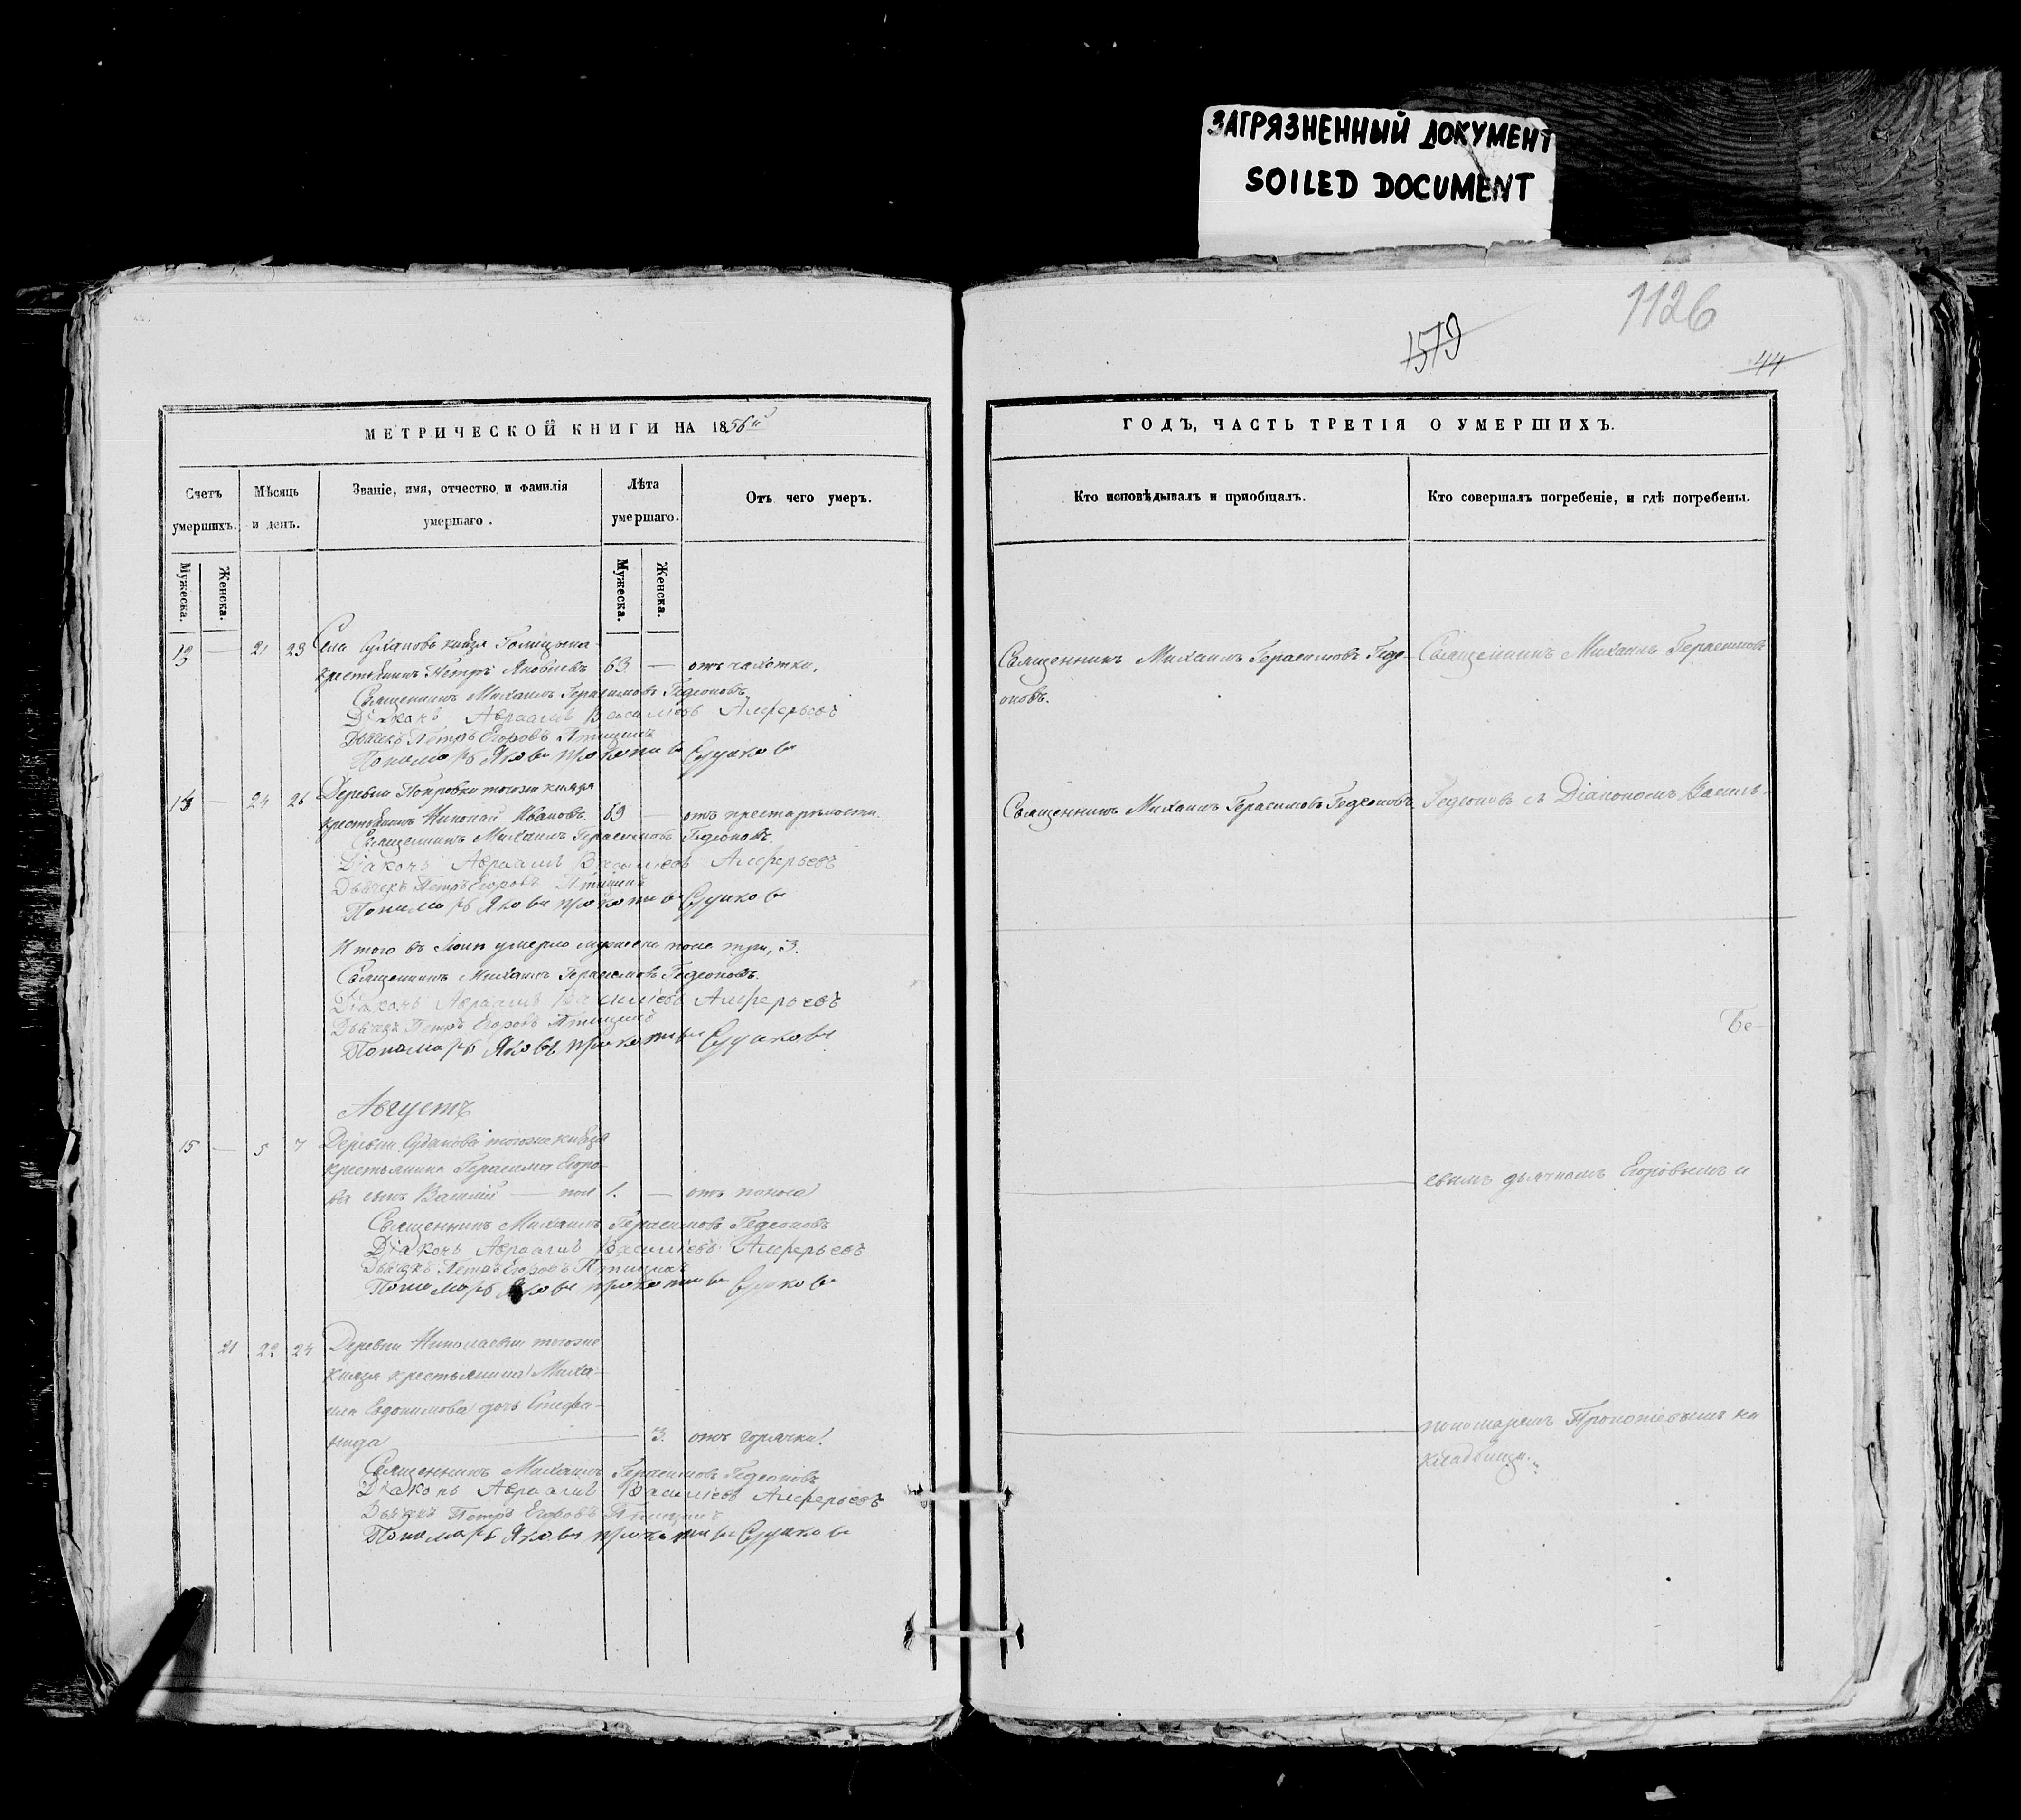 ЗАГРЯЗНЕННЫЙ ДОКУМЕНТ
SOILED DOCUMENT
1126
1579
44
МЕТРИЧЕСКОЙ КНИГИ НА 1856й
Счетъ умершихъ.
Мѣсяцъ и день.
Званіе, имя, отчество и фамилія умершаго.
Лѣта умершаго.
Отъ чего умеръ.
Мужеска.
Женска.
Мужеска.
Женска.
13 — 21 23 Села князя Голицына
крестьянинъ Петръ Яковлевъ 63 — отъ чахотки.
Священникъ Михаилъ Герасимовъ Гедеоновъ
Діаконъ Авраамъ Васильевъ Алферьевъ
Дьячекъ Петръ Егоровъ Птицынъ
Пономарь Яковъ Прокопьевъ
14 — 24 26 Деревни Покровки тогоже князя
крестьянинъ Николай Ивановъ — отъ престарѣлости.
Священникъ Михаилъ Герасимовъ Гедеоновъ.
Діаконъ Авраамъ Васильевъ Алферьевъ
Дьячекъ Петръ Егоровъ Птицынъ
Пономарь Яковъ
Итого въ умерло мужеска пола три, 3.
Священникъ Михаилъ Герасимовъ Гедеоновъ.
Діаконъ Авраамъ Васильевъ Алферьевъ
Дьячекъ Петръ Егоровъ Птицынъ
Пономарь Яковъ
Августъ
15 — 5 7 Деревни тогоже князя
крестьянина Герасима Егоро-
ва сынъ Василій — 1. — отъ поноса
Священникъ Михаилъ Герасимовъ Гедеоновъ
Діаконъ Авраамъ Васильевъ Алферьевъ
Дьячекъ Петръ Егоровъ Птицынъ
Пономарь Яковъ
21 22 24 Деревни Николаевки тогоже
князя крестьянина Миха-
ила Евдокимова дочь Стефа-
нида — 3. отъ горячки.
Священникъ Михаилъ Герасимовъ Гедеоновъ
Діаконъ Авраамъ Васильевъ Алферьевъ
Дьячекъ Петръ Егоровъ Птицынъ
Пономарь Яковъ
ГОДЪ, ЧАСТЬ ТРЕТІЯ О УМЕРШИХЪ.
Кто исповѣдывалъ и приобщалъ.
Кто совершалъ погребеніе, и гдѣ погребены.
Священникъ Михаилъ Герасимовъ Геде-
оновъ.
Священникъ Михаилъ Герасимовъ
Священникъ Михаилъ Герасимовъ Гедеоновъ.
Гедеоновъ съ Діакономъ Василь-
евымъ дьячкомъ Егоровымъ и
пономаремъ Прокопіевымъ на
кладбищѣ.